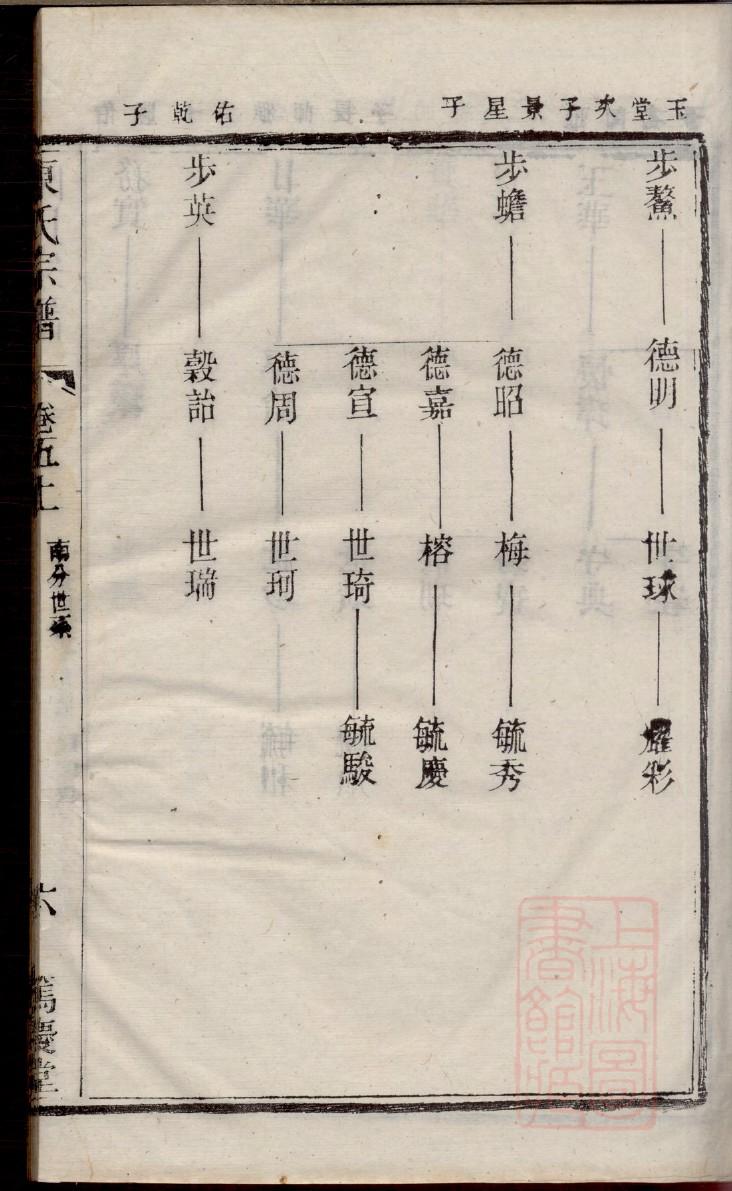 玉堂次子景星子
佑乾子
步鰲 德明 世球 耀彩
步蟾 德昭 梅 毓秀
德嘉 榕 毓慶
德宣 世琦 毓駿
德周 世珂
步英 穀詒 世瑞
氏宗譜 卷五上 南分世系 六 篤慶堂
上海圖書館藏